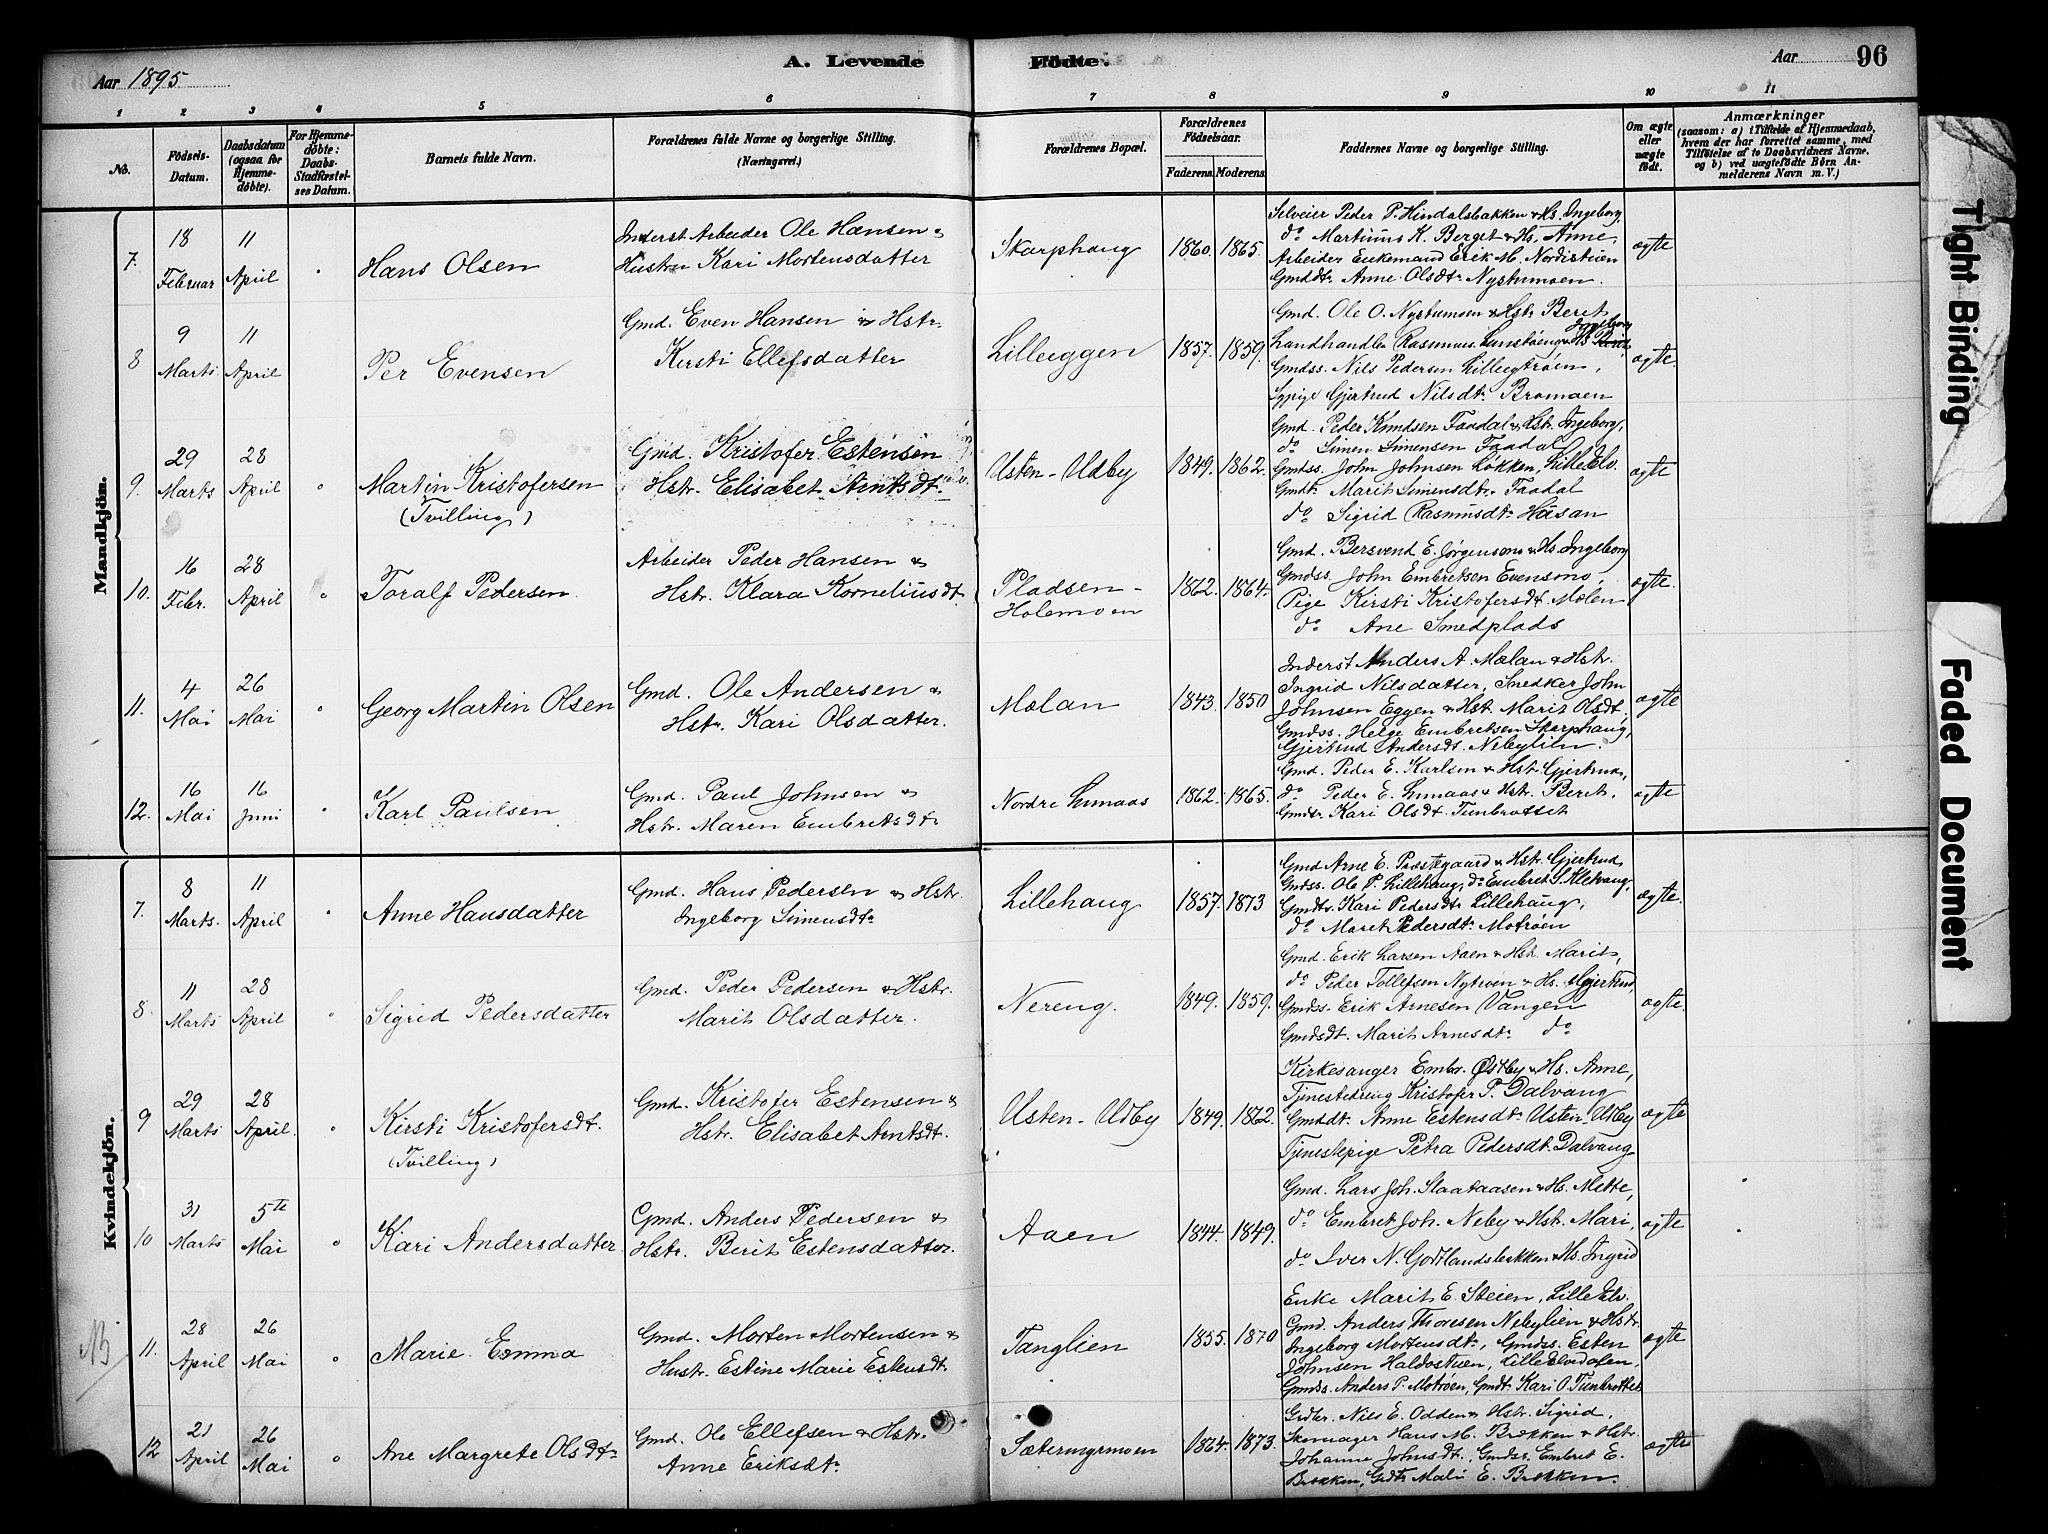 Aar 1895
A. Levende Födte.
Aar 96
1 2 3 4 5 6 7 8 9 10 11
No.
Födsels-Datum.
Daabsdatum (ogsaa for Hjemmedöbte).
For Hjemmedöbte: Daabs-Stadfæstelses Datum.
Barnets fulde Navn.
Forældrenes fulde Navne og borgerlige Stilling. (Næringsvei.)
Forældrenes Bopæl.
Forældrenes Födselsaar.
Faderens. Moderens.
Faddernes Navne og borgerlige Stilling.
Om ægte eller uægte födt.
Anmærkninger
(saasom: a) i Tilfælde af Hjemmedaab, hvem der har forrettet samme, med Tilföielse af to Daabsvidners Navne, og b) ved uægtefödte Börn Anmelderens Navn m. V.)
Mandkjön.
7. 18 Februar 11 April Hans Olsen
Inderst Arbeider Ole Hansen &
Hustru Kari Mortensdatter
Skarphaug 1860. 1865.
Selveier Peder P. Hindalsbakken & Hs. Ingeborg,
do Martinus K. Berget & Hs. Anne,
Arbeider Enkemand Erik M. Nordistuen
Gmddtr. Anne Olsdtr Nystumoen.
ægte
8 9 Marts 11 April Per Evensen
Gmd. Even Hansen & Hstr.
Kirsti Ellefsdatter
Lilleeggen 1857. 1859.
Gmd. Ole O. Nystumoen & Hstr Beret
Landhandler Rasmus & Hs Ingeborg
Gmdss. Nils Pedersen Lilleegtrøen,
Sypige Gjertrud Nilsdt. Bromoen
ægte.
9. 29 Marts 28 April Martin Kristofersen
(Tvilling)
Gmd. Kristofer Estensen
Hstr. Elisabet Arntsdt.
Usten-Udby 1849. 1862.
Gmd. Peder Knudsen Faadal & Hstr. Ingeborg,
do Simen Simensen Faadal
Gmdss. John Johnsen Løkken, Lille Elv.
Gmdt. Marit Simensdtr. Faadal
do Sigrid Rasmusdt. Haasan
ægte
10. 16 Febr. 28 April Toralf Pedersen
Arbeider Peder Hansen &
Hstr. Klara Korneliusdt.
Pladsen-
Holemoen 1862. 1864.
Gmd. Bersvend E. Jørgensmo & Hs. Ingeborg
Gmdss. John Embretsen Evensmo,
Pige Kirsti Kristofersdt. Mælen
do Ane Smedplads
ægte.
11. 4 Mai 26 Mai Georg Martin Olsen
Gmd. Ole Andersen &
Hstr. Kari Olsdatter.
Mælan 1843. 1850
Inderst Anders A. Mælan & Hstr.
Ingrid Nilsdatter, Snedker John
Johnsen Eggen & Hstr. Marit Olsdt,
Gmdss. Helge Embretsen Skarphaug,
Gjertrud Andersdt. Nebylien.
ægte
12. 16 Mai 16 Juni Karl Paulsen
Gmd. Paul Johnsen &
Hstr. Maren Embretsdtr
Nordre Lunaas 1862. 1865.
Gmd. Peder E. Karlsen & Hst. Gjertrud,
do Peder E. Lunaas & Hstr. Beret,
Gmdtr. Kari Olsdt. Tunbrottet
ægte
Kvindekjön.
7. 8 Marts. 11 April Anne Hansdatter
Gmd. Hans Pedersen & Hstr.
Ingeborg Simensdtr
Lillehaug 1857. 1873
Gmd Arne E. Præstegaard & Hstr. Gjertrud,
Gmdss. Ole P. Lillehaug, do Embret S. Kletvang,
Gmdtr. Kari Pedersdtr Lillehaug,
do Maret Pedersdt. Motrøen
ægte.
8. 11 Marts 28 April Sigrid Pedersdatter
Gmd. Peder Pedersen & Hstr.
Marit Olsdatter.
Nereng. 1849. 1859.
Gmd. Erik Larsen Aaen & Hstr. Marit,
do Peder Tollefsen Nytrøen & Hs. Gjertrud,
Gmdss. Erik Arnesen Vangen
Gmdsdt. Marit Arnesdtr do
ægte.
9 29 Marts 28 April. Kirsti Kristofersdt.
(Tvilling)
Gmd. Kristofer Estensen &
Hstr. Elisabet Arntsdt.
Usten-Udby 1849. 1862.
Kirkesanger Embr. Østby & Hs. Anne,
Tjenestedreng Kristofer P. Dalvang
Gmddt. Anne Estensdt. Usten-Udby
Tjenestepige Petra Pedersdt. Dalvang
ægte
10 31 Marts 5te Mai Kari Andersdatter
Gmd. Anders Pedersen &
Hstr. Berit Estensdatter.
Aaen 1844. 1849.
Gmd. Lars Joh. Staataasen & Hs. Mette,
do Embret Joh. Neby & Hst. Mari,
do Iver N. Godtlandsbakken & Hs. Ingrid
ægte
NB
11. 28 April 26 Mai Marie Emma
Gmd. Morten Mortensen &
Hustr. Estine Marie Estensdt.
Tanglien 1855. 1870
Enke Marit E. Steien, Lille Elv.
Gmd. Anders Thoresen Nebylien & Hstr
Ingeborg Mortensdtr, Gmdss. Esten
Johnsen Haldostuen, Lille Elvdalen,
Gmdss. Anders P. Motrøen, Gmdt. Kari O. Tunbrottet
ægte
12 21 April 26 Mai Ane Margrete Olsdtr
Gmd. Ole Ellefsen & Hstr.
Anne Eriksdtr
Sætermyrmoen 1864. 1873.
Grdbr. Nils E. Odden & Hstr. Sigrid,
Skomager Hans M. Brækken & Hstr.
Johanne Johnsdt., Gmdss. Embret E.
Brækken, Grdtr Mali E. Brækken.
ægte
Tight Binding
Faded Document